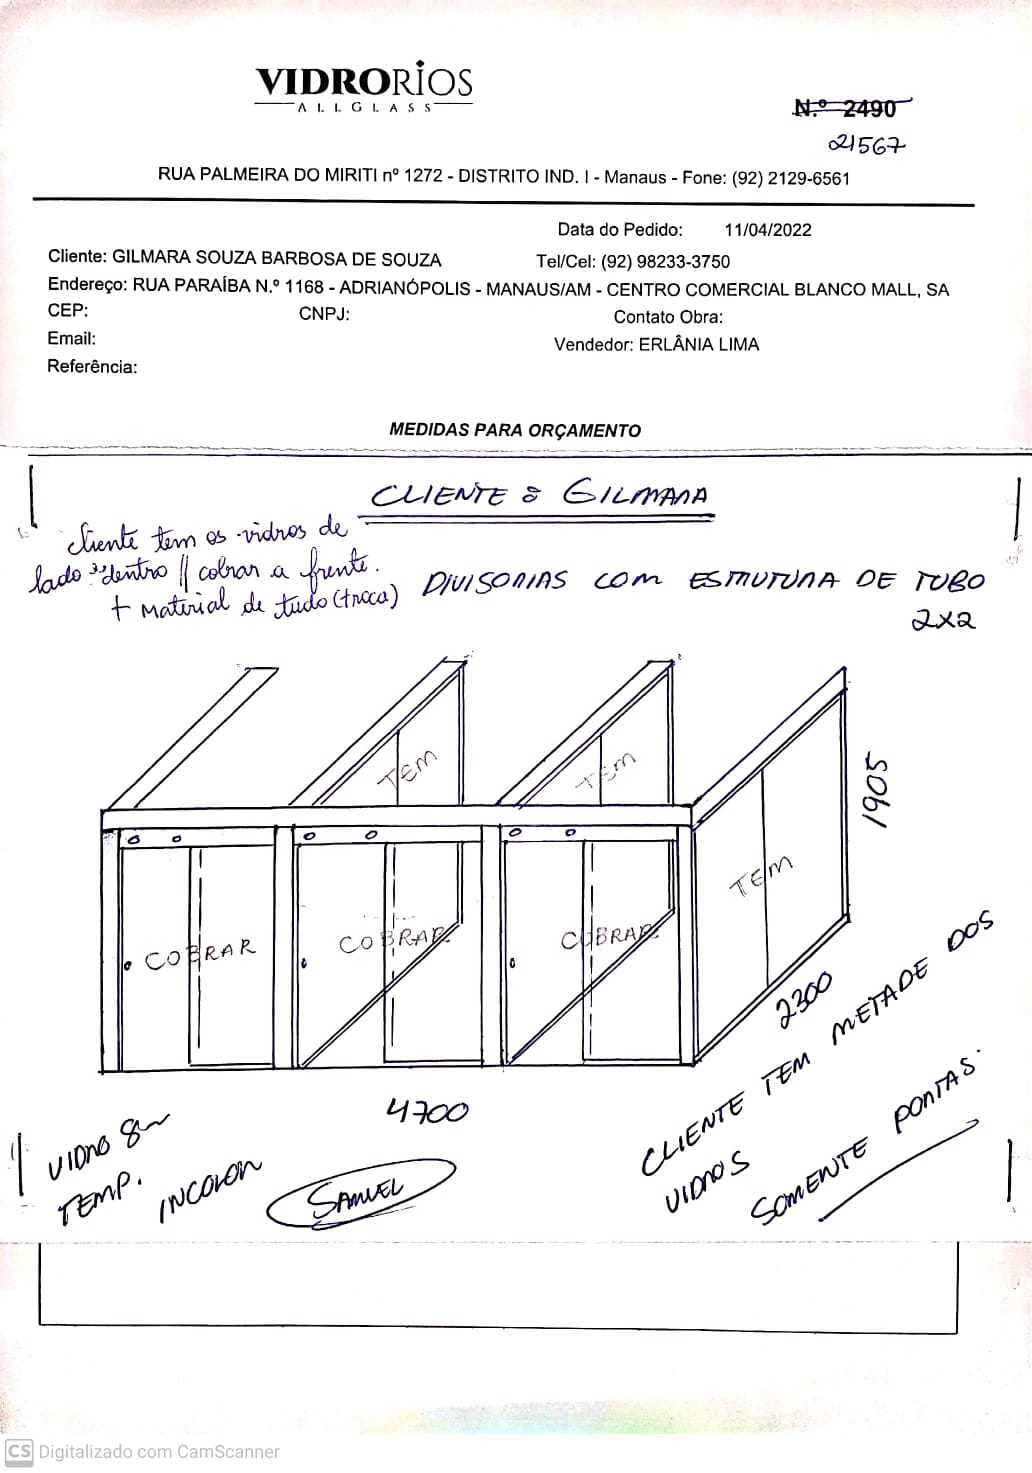 VIDRORIOS
ALLGLASS
N.º 2490
21567
RUA PALMEIRA DO MIRITI nº 1272 - DISTRITO IND. I - Manaus - Fone: (92) 2129-6561
Data do Pedido: 11/04/2022
Cliente: GILMARA SOUZA BARBOSA DE SOUZA Tel/Cel: (92) 98233-3750
Endereço: RUA PARAÍBA N.º 1168 - ADRIANÓPOLIS - MANAUS/AM - CENTRO COMERCIAL BLANCO MALL, SA
CEP: CNPJ: Contato Obra:
Email: Vendedor: ERLÂNIA LIMA
Referência:
MEDIDAS PARA ORÇAMENTO
CLIENTE : GILMARA
cliente tem os vidros de
lado "dentro // cobrar a frente.
+ material de tudo (troca)
DIVISORIAS COM ESTRUTURA DE TUBO
2X2
TEM
TEM
1905
TEM
COBRAR
COBRAR
COBRAR
2300
4700
CLIENTE TEM METADE DOS
VIDROS
SOMENTE PORTAS.
VIDRO 8m
TEMP.
INCOLOR
SAMUEL
CS Digitalizado com CamScanner